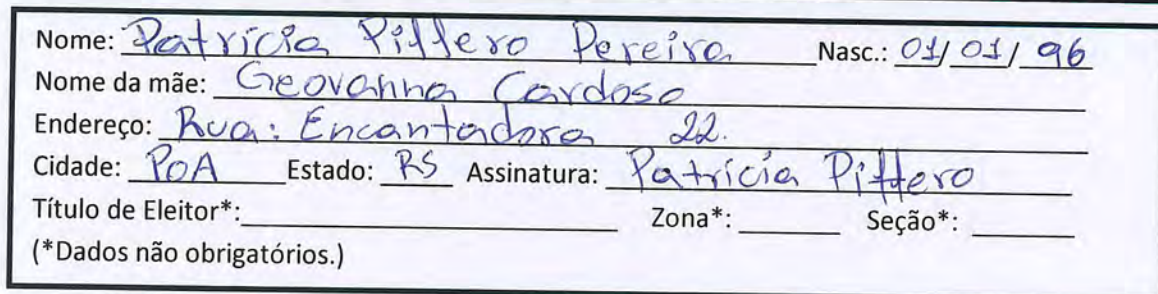 Nome: Patrícia Piffero Pereira Nasc.: 01/01/96
Nome da mãe: Geovanna Cardoso
Endereço: Rua: Encantadora 22.
Cidade: POA Estado: RS Assinatura: Patrícia Piffero
Título de Eleitor*: Zona*: Seção*:
(*Dados não obrigatórios.)